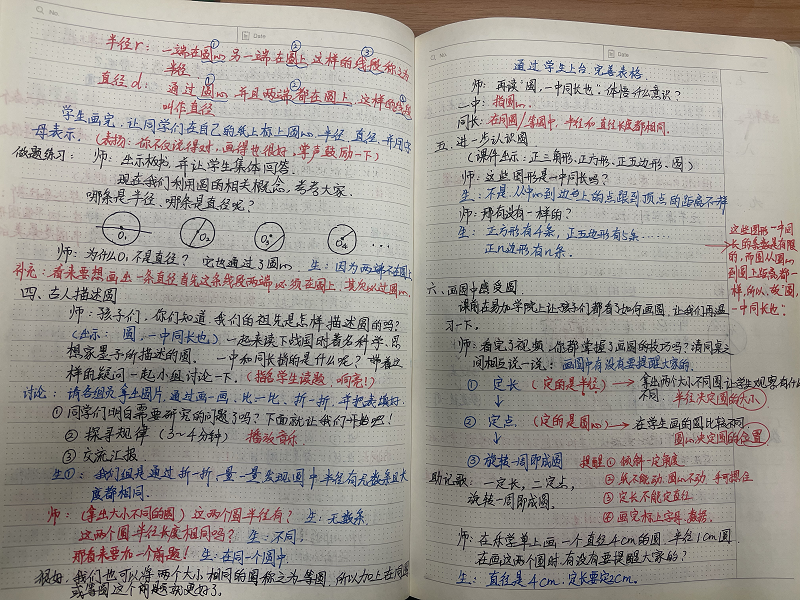 No.
Date
半径r：一端在圆心①另一端在圆上②这样的线段③称之为
半径
直径d：通过圆心①并且两端都在圆上②，这样的线段③
叫作直径
学生画完，让同学们在自己的纸上标上圆心、半径、直径，并用字
母表示。（表扬：你不仅说得对，画得也很好，掌声鼓励一下）
做题练习：师：出示板书，并让学生集体回答.
现在我们利用圆的相关概念，考考大家.
哪条是半径，哪条是直径呢？
O₁ O₂ O₃ O₄ ...
师：为什么O₁不是直径？它也通过了圆心 生：因为两端不在圆上
补充：看来要想画出一条直径首先这条线段两端必须在圆上，其次必过圆心.
四、古人描述圆
师：孩子们，你们知道，我们的祖先是怎样描述圆的吗？
（出示：圆，一中同长也。）一起来读下战国时著名科学、思
想家墨子所描述的圆。一中和同长指的是什么呢？带着这
样的疑问一起小组讨论一下.（指名学生读题，响亮！）
讨论：请各组先拿出图片，通过画一画，比一比，折一折，并把表填好.
①同学们明白需要研究的问题了吗？下面就让我们开始吧！
②探寻规律（3～4分钟） 播放音乐
③交流汇报.
生①：我们组是通过折一折、量一量发现圆中半径有无数条且长
度都相同.
师：（拿出大小不同的圆）这两个圆半径有？生：无数条.
这两个圆半径长度相同吗？生：不同.
那看来要加一个前题！生：在同一个圆中.
很好，我们也可以将两个大小相同的圆称之为等圆，所以加上在同圆
或等圆这个前题就更好了.
No.
Date
通过学生上台，完善表格.
师：再读"圆，一中同长也."体悟什么意识？
一中：指圆心.
同长：在同圆/等圆中，半径和直径长度都相同.
五、进一步认识圆
（课件出示：正三角形、正方形、正五边形、圆）
师：这些图形是一中同长吗？
生：不是，从中心到边上的点跟到顶点的距离不一样
师：那有没有一样的？
生：正方形有4条，正五边形有5条......
正n边形有n条.
这些图形一中同
长的条数是有限
的，而圆从圆心
到圆上距离都一
样，所以，故"圆，
一中同长也."
六、画图中感受圆.
课前在易加学院上让孩子们都看了如何画圆，让我们再温
习一下.
师：看完了视频，你都掌握了画圆的技巧吗？请同桌之
间相互说一说：画圆中有没有要提醒大家的.
①定长（定的是半径）→拿出两个大小不同圆让学生观察有什么
不同. 半径决定圆的大小
②定点（定的是圆心）→在学生画的圆比较不同
圆心决定圆的位置
③旋转一周即成圆 提醒①倾斜一定角度
②纸不能动，圆心不动 手可摁住
③定长不能定直径
④画完标上字母、数据.
助记歌：一定长，二定点，
旋转一周即成圆.
师：在乐学单上画一个直径4cm的圆、半径1cm圆.
在画这两个圆时，有没有要提醒大家的？
生：直径是4cm，定长要定2cm.